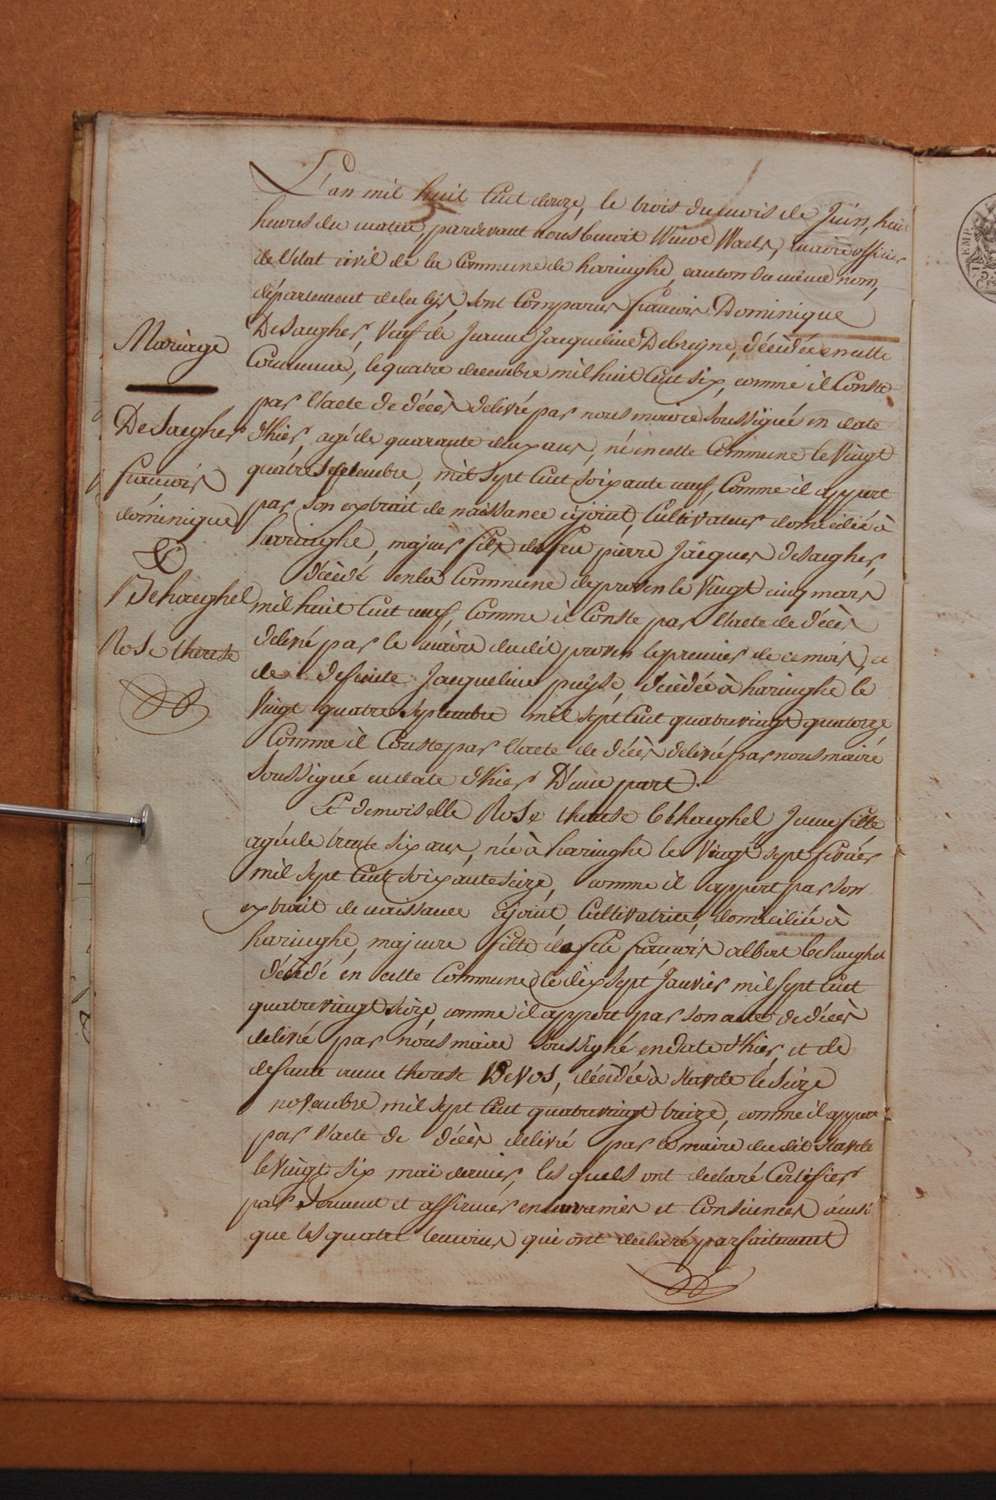 Mariage
DeSaegher
francois
dominique
&
Behaeghel
Rose therese
L'an mil huit Cent douze, le trois du mois de Juin, huit
heures du matin, pardevant nous benoit Winoc Waels, maire officier
de l'état civil de la Commune de haringhe, canton du même nom,
département de la lys, sont Comparus francois Dominique
DeSaegher, Veuf de Jeanne Jacqueline Debruyne, décédée en cette
Commune, le quatre decembre mil huit Cent six, comme il Conste
par l'acte de décès delivré par nous maire soussigné en date
d'hier, agé de quarante deux ans, né en cette Commune le Vingt
quatre septembre, mil sept Cent soixante neuf, Comme il appert
par son extrait de naissance cijoint, Cultivateur domicilié à
haringhe, majeur fils de feu pierre Jacques desaegher,
décédé en la Commune de proven le Vingt cinq mars
mil huit Cent neuf, Comme il Conste par l'acte de décès
delivré par le maire dudit proven le premier de ce mois, et
de defunte Jacqueline puyse, décédée à haringhe le
Vingt quatre septembre mil sept Cent quatrevingt quatorze
Comme il Conste par l'acte de décès delivré par nous maire
soussigné en date d'hier D'une part.
Et demoiselle Rose therese behaeghel Jeune fille
agée de trente six ans, née à haringhe le Vingt sept fevrier
mil sept Cent soixante seize, comme il appert par son
extrait de naissance cijoint, Cultivatrice, domiciliée à
haringhe, majeure fille de feu francois albert behaeghel
décédé en cette Commune le dix sept Janvier mil sept Cent
quatrevingt seize, comme il appert par son acte de décès
delivré par nous maire soussigné en date d'hier, et de
defunte anne therese DeVos, décédée à stavele le seize
novembre mil sept Cent quatrevingt treize, comme il appert
par l'acte de décès delivré par le maire du dit stavele
le Vingt six maï dernier, les quels ont declaré Certifier
par serment et affirmer en leurs ames et Consciences ainsi
que les quatre temoins qui ont declaré parfaitement